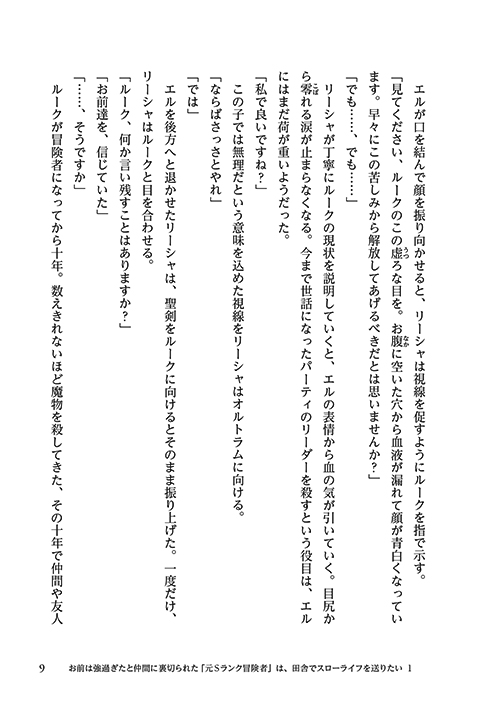 エルが口を結んで顔を振り向かせると、リーシャは視線を促すようにルークを指で示す。
「見てください、ルークのこの虚ろな目を。お腹に空いた穴から血液が漏れて顔が青白くなってい
ます。早々にこの苦しみから解放してあげるべきだとは思いませんか?」
「でも……、でも……」
リーシャが丁寧にルークの現状を説明していくと、エルの表情から血の気が引いていく。目尻か
ら零れる涙が止まらなくなる。今まで世話になったパーティのリーダーを殺すという役目は、エル
にはまだ荷が重いようだった。
「私で良いですね?」
この子では無理だという意味を込めた視線をリーシャはオルトラムに向ける。
「ならばさっさとやれ」
「では」
エルを後方へと退かせたリーシャは、聖剣をルークに向けるとそのまま振り上げた。一度だけ、
リーシャはルークと目を合わせる。
「ルーク、何か言い残すことはありますか?」
「お前達を、信じていた」
「……、そうですか」
ルークが冒険者になってから十年。数えきれないほど魔物を殺してきた、その十年で仲間や友人
9 お前は強過ぎたと仲間に裏切られた「元Sランク冒険者」は、田舎でスローライフを送りたい 1